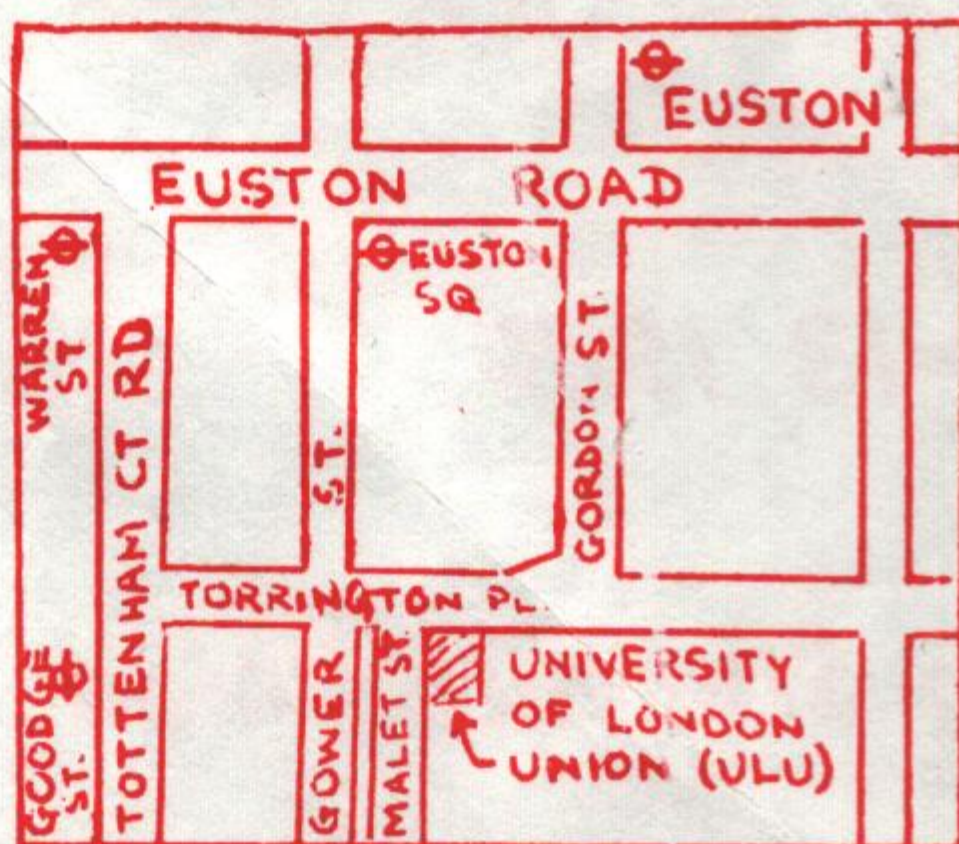 EUSTON
EUSTON ROAD
WARREN
ST
EUSTON
SQ
TOTTENHAM CT RD
GORDON ST.
GOWER ST.
TORRINGTON PL.
GOODGE
ST.
MALET ST.
UNIVERSITY
OF LONDON
UNION (ULU)